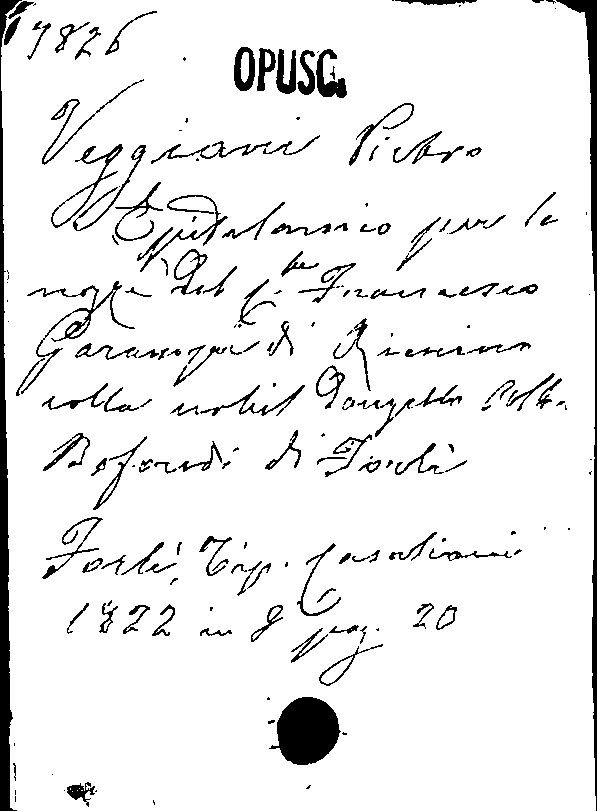 7826
OPUSC.
Veggiani Pietro
Epitalamio per le
nozze del c.te Francesco
Garampi di Rimino
colla nobil Donzella
Bofondi di Forlì
Forlì, Tip. Casaliani
1822 in 8 pag. 20